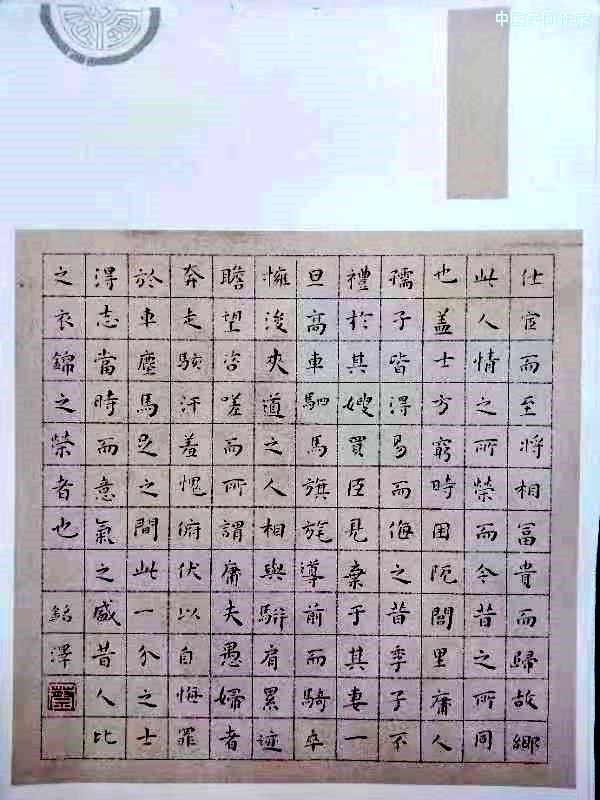 中国民间作家
仕宦而至將相冨貴而歸故鄉
此人情之所榮而今昔之所同
也盖士方窮時困阨閭里庸人
孺子皆得易而侮之昔季子不
禮於其嫂買臣見棄于其妻一
旦高車駟馬旗旄導前而騎卒
擁後夾道之人相與駢肩累迹
瞻望咨嗟而所謂庸夫愚婦者
奔走駭汗羞愧俯伏以自悔罪
於車塵馬足之間此一介之士
得志當時而意氣之盛昔人比
之衣錦之榮者也 銘澤